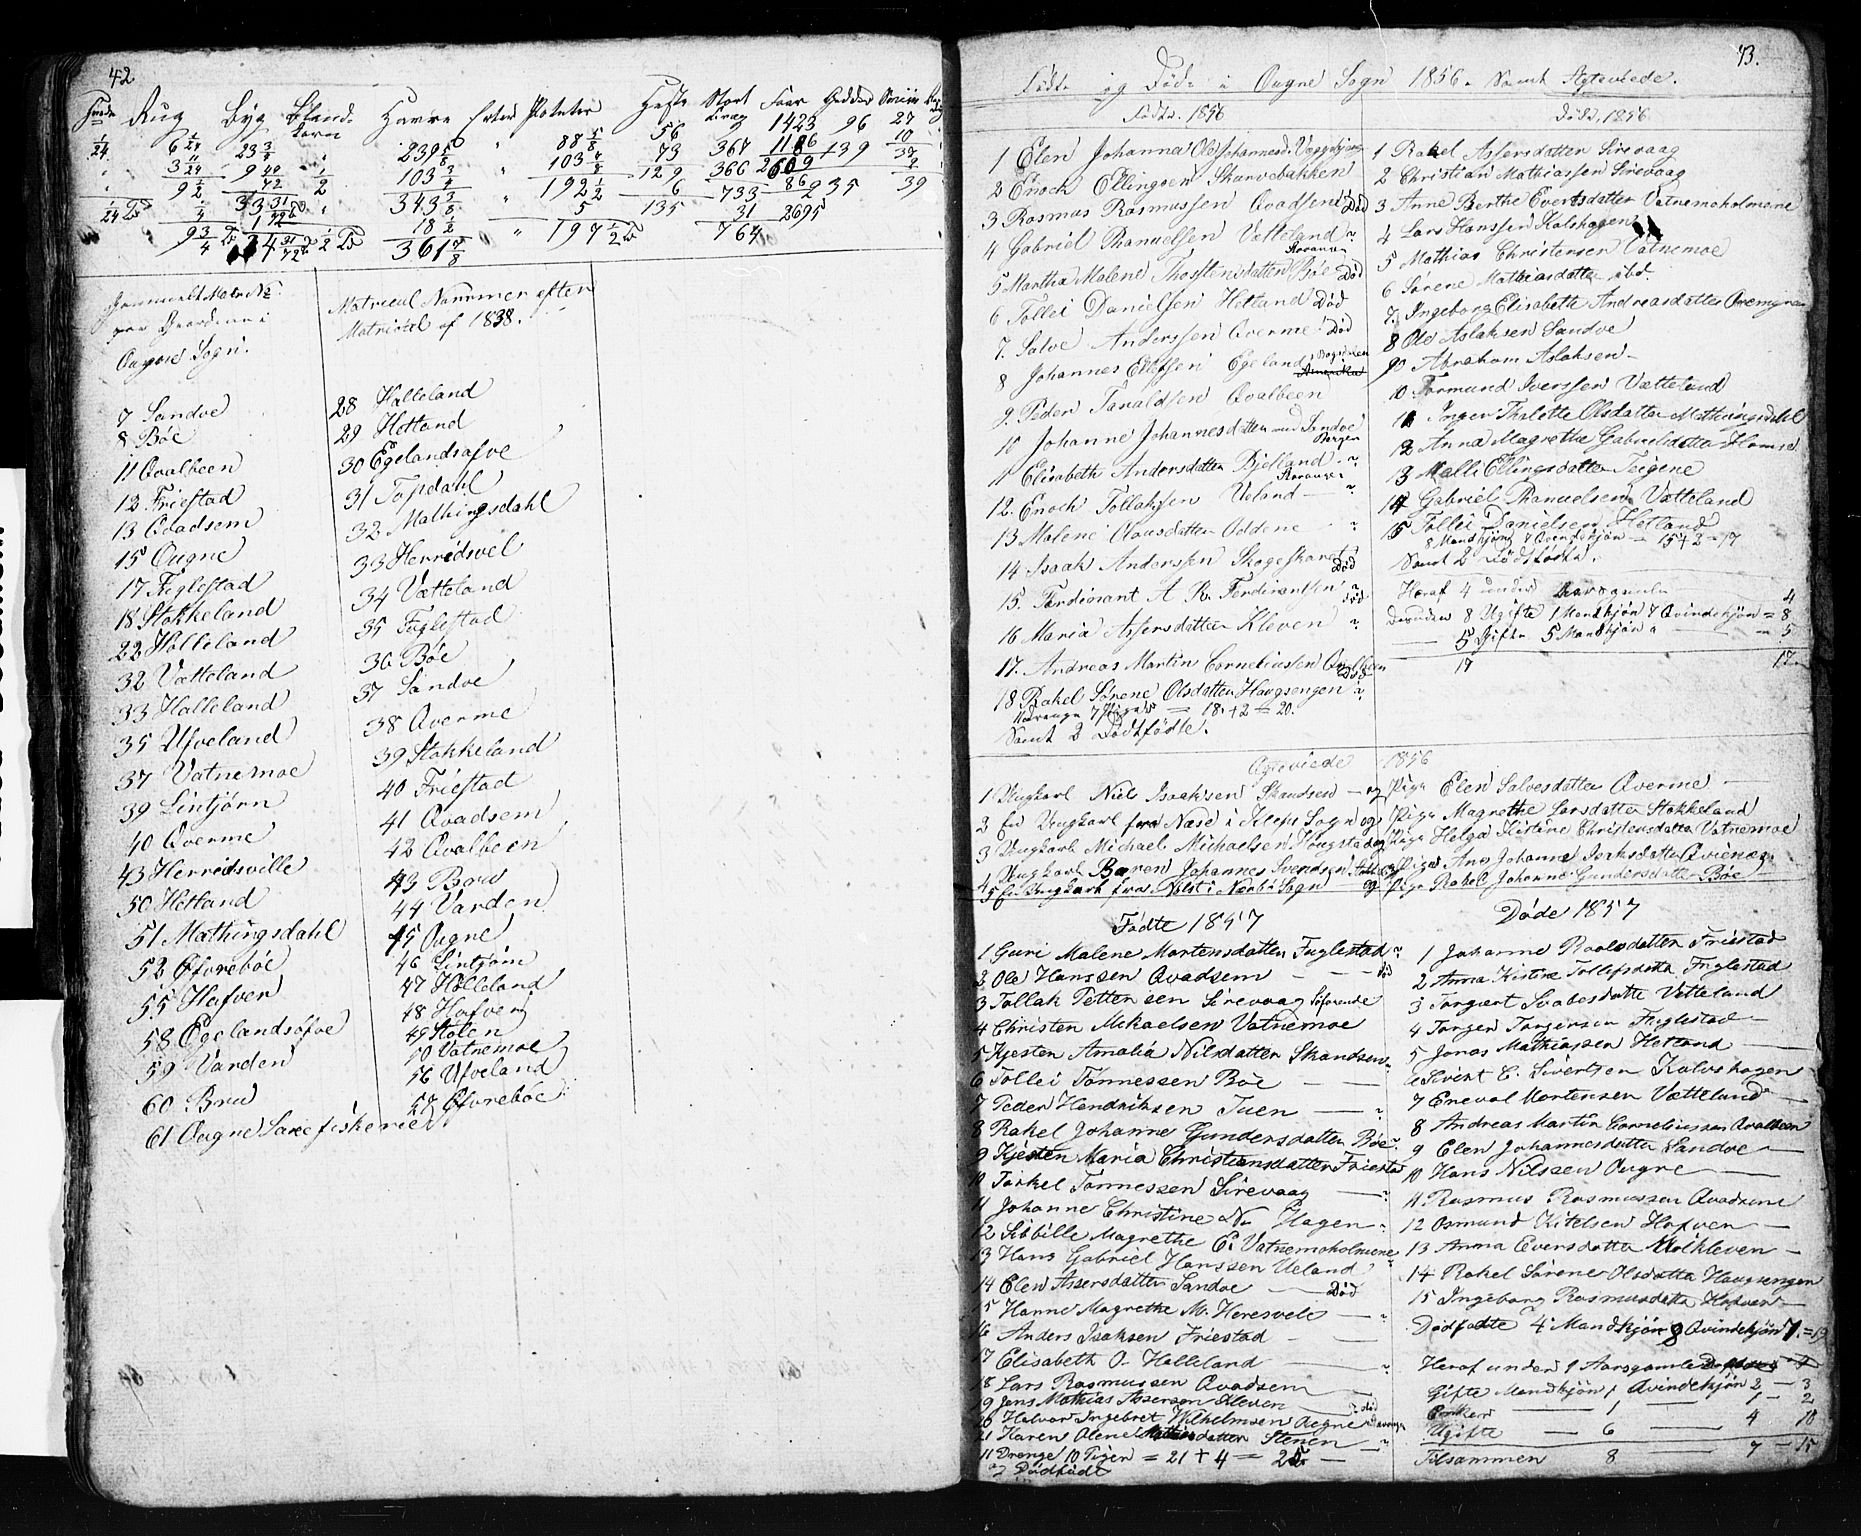 42
Rug Byg Bland- Havre Erter Poteter Heste Stort Faar Gedder Sviin
korn Qvæg
56 1423 96 27
1/24 239 5/8 88 5/8 73 367 1186 139 10
103 3/4 103 4/8 129 366 2609 37
343 3/8 192 1/2 6 733 86 235 39
18 1/2 5 135 31 2695
361 7/8 197 1/2 764
Gammelt Matr No
paa Gaardene i
Ougne Sogn.
Matricul Nummer efter
Matrickel af 1838.
7 Sandve
8 Böe
11 Qvalbeen
12 Friestad
13 Qvadsem
15 Ougne
17 Figlestad
18 Stokkeland
22 Hölleland
32 Vætteland
33 Halleland
35 Ufveland
37 Vatnemoe
39 Lintjörn
40 Qverme
43 Herredsville
50 Hetland
51 Mathingsdahl
52 Öfvreböe
55 Hafver
58 Egelandsöfve
59 Varden
60 Bru
61 Ougne Laxefiskerie
28 Halleland
29 Hetland
30 Egelandsöfve
31 Tapdahl
32 Mathingsdahl
33 Herredsvel
34 Vætteland
35 Fuglestad
36 Böe
37 Sandve
38 Qverme
39 Stokkeland
40 Friestad
41 Qvadsem
42 Qvalbeen
43 Bru
44 Varden
45 Ougne
46 Lintjörn
47 Hölleland
48 Hafver
49 Stölen
50 Vatnemoe
56 Ufveland
57 Öfvreböe
43.
Födte og Döde i Ougne Sogn 1856. Samt Egteviede.
Födte. 1856
1 Elen Johanna Olsdatter
2 Enoch Ellingsen Skarvebakken
3 Rasmus Rasmussen Qvadsem Död
4 Gabriel Thanuelsen Vetteland
5 Martha Malene Thostensdatter Böe Död
6 Tollei Danielsen Hetland Död
7. Salve Anderssen Qverme Död
8 Johannes Ellefsen Egeland
9. Peder Tanaldsen Qvalbeen
10 Johanne Johannesdatter Sandve
11 Elisabeth Andersdatter Bjelland
12. Enoch Tollaksen Ueland
13 Malene Clausdatter Oddene
14 Isaak Anderssen Skogeskaret
Död
15. Ferdinant A R. Ferdinantsen
16 Maria Assersdatter Kleven
17. Andreas Martin Corneliussen Qvalbeen
Död
18 Rakel Sörene Olsdatter Haugsengen
11 Drenge 7 Piger = 18 + 2 = 20.
Samt 2 Dödfödte.
Döde. 1856
1 Rakel Assersdatter Sirevaag
2 Christian Mathiassen Sirevaag
3 Anne Berthe Evertsdatter Vatnemoholmene
4 Lars Hanssen Kalshagen
5 Mathias Christensen Vatnemoe
6 Sörene Mathiasdatter ibd.
7. Ingeborg Elisabeth Andreasdatter
8 Ole Aslaksen Sandve
9 Abraham Aslaksen
10 Tormund Iverssen Vætteland
11 Inger Thalette Olsdatter Mathingsdahl
12 Anna Magrethe Gabrielsdatter
13 Malli Ellingsdatter Teigene
14 Gabriel Thanuelsen Vætteland
15 Tollei Danielsen Hetland
8 Mandkjön 7 Qvindekjön = 15 + 2 = 17
Samt 2 Dödfödte.
Heraf 4 under 4
Desuden 8 Ugifte 1 Mandkjön 7 Qvindekjön = 8
5 Gifte 5 Mandkjön = 5
17 17
Egteviede 1856
1 Ungkarl Niels Isaaksen Skandsen og Pige Elen Salvesdatter Qverme
2 En Ungkarl fra Næse i Klep Sogn og Pige Magrethe Larsdatter Stokkeland
3 Ungkarl Michael Michaelsen og Pige Helga Kirstine Christensdatter Vatnemoe
4 Ungkarl Baron Johannes Svendsen og Pige Ane Johanne Isaksdatter
5 En Ungkarl fra i Sogn og Pige Rakel Johanne Gundersdatter Böe
Födte 1857
1 Guri Malene Mortensdatter Fuglestad
2 Ole Hanssen Qvadsem
3 Tollak Pettersen Sirevaag
4 Christen Mikaelsen Vatnemoe
5 Kjesten Amalia Nilsdatter Skandsen
6 Tollei Tönnessen Böe
7 Peder Hendriksen Tuen
8 Rakel Johanne Gundersdatter Böe
9 Kjesten Maria Christiansdatter Friestad
10 Torkel Tönnessen Sirevaag
11 Johanne Christine N. Hagen
12 Sibbille Magrethe E. Vatnemoholmene
13 Hans Gabriel Hanssen Ueland
14 Elen Assersdatter Sandve Död
15 Hanne Magrethe M. Heresvele
16 Anders Isaksen Friestad
17 Elisabeth O. Halleland
18 Lars Rasmussen Qvadsem
19 Jens Mathias Assersen Kleven
20 Halvor Ingebret Wilhelmsen Oegne
21 Karen Olene Mathiasdatter Stenen
11 Drenge 10 Piger = 21 + 4 = 25
og Dödfödt
Döde 1857
1 Johanne Roalsdatter Friestad
2 Anna Kistine Tollefsdatter Fuglestad
3 Torgiert Svabesdatter Vetteland
4 Torger Torgersen Fuglestad
5 Jonas Mathiassen Hetland
6 Sivert C. Sivertsen Kalvshagen
7 Enevol Mortensen Vætteland
8 Andreas Martin Corneliussen Qvalbeen
9 Elen Johannesdatter Sandve
10 Hans Nilssen Ougne
11 Rasmus Rasmussen Qvadsem
12 Osmund Kitelsen Hafver
13 Anna Eversdatter Molkleven
14 Rakel Sörene Olsdatter Haugsengen
15 Ingeborg Rasmusdatter Hafver
Dödfödte 4 Mandkjön 8 Qvindekjön 7. = 19
Heraf under 1 Aarsgamle 4
Gifte Mandkjön 1 Qvindekjön 2 — 3
Enker 1 1 — 2
Ugifte 6 4 10
Tilsammen 8 7 — 15